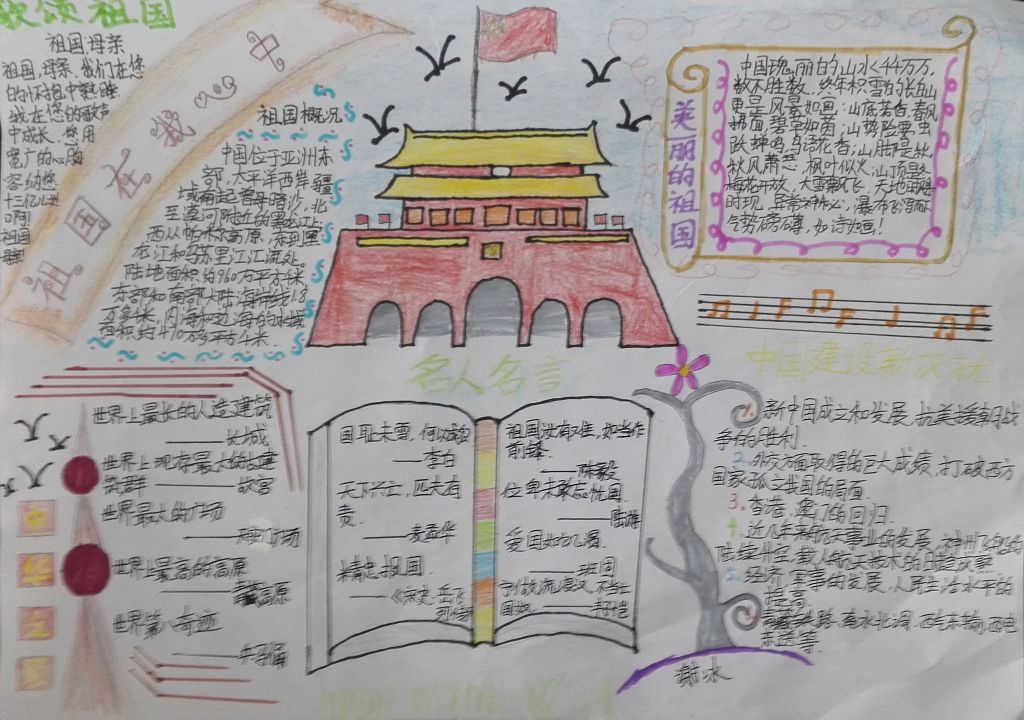 歌颂祖国
祖国,母亲
祖国,母亲,我们在您
的怀抱中熟睡
我在您的歌声
中成长,您用
宽广的心胸
容纳您
十三亿儿女
啊!
祖国
母亲!
祖国在我心中
祖国概况
中国位于亚洲东
部,太平洋西岸,疆
域南起曾母暗沙,北
至漠河附近的黑龙江上,
西从帕米尔高原,东到黑
龙江和乌苏里江汇流处。
陆地面积约960万平方千米,
东部和南部大陆海岸线1.8
万多千米,内海和边海的水域
面积约470万多平方千米.
美丽的祖国
中国瑰丽的山水千千万万,
数不胜数,终年积雪的
更是风景如画:山底若春,春风
拂面,碧草如茵;山
跃,蝉鸣鸟语花香;山腰即是秋,
秋风萧瑟,枫叶似火;山顶是冬,
梅花开放,大雪飘飞,天地
时现,
气势磅礴,如诗如画!
世界上最长的人造建筑
——长城
世界上现存最大的古建
筑群——故宫
世界最大的广场
——天安门广场
世界上最高的高原
——青藏高原
世界第八奇迹
——兵马俑
中
华
之
最
名人名言
国耻未雪,何以成名
——李白
天下兴亡,匹夫有
责.
——麦孟华
精忠报国.
——《宋史·岳飞
列传》
祖国沈有难,如当作
前锋.
——陈毅
位卑未敢忘忧国.
——陆游
爱国如饥渴.
——班固
宁作流浪汉,不当亡
国奴.
中国建设新成就
1.新中国成立和发展,抗美援朝战
争的胜利.
2.外交方面取得的巨大成绩,打破西方
国家孤立我国的局面.
3.香港、澳门的回归.
4.近几年来航天事业的发展,神州飞船的
陆续升空,载人航天技术的日趋成熟.
5.经济、军事的发展,人民生活水平的
提高
6.青藏铁路、南水北调、西气东输、西电
东送等.
谢冰